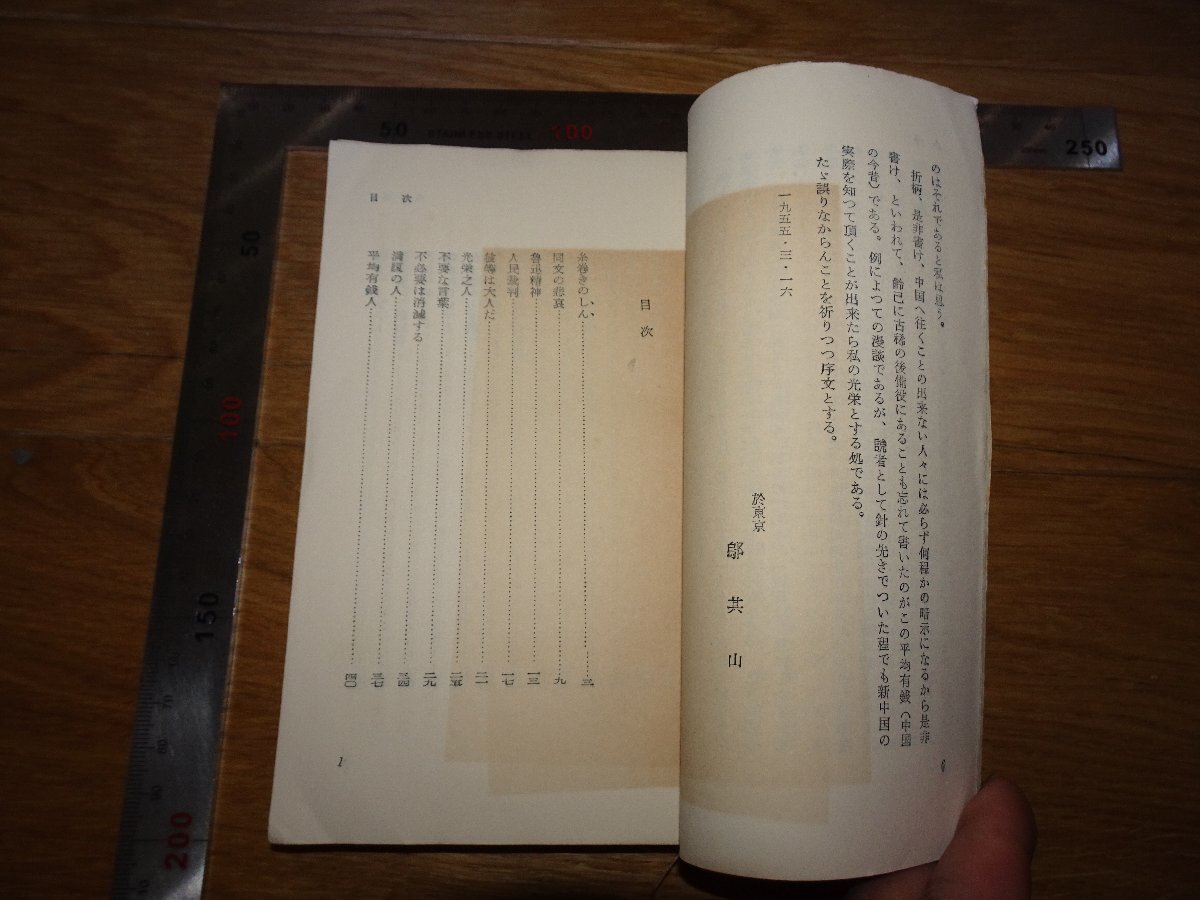 のはそれであると私は思う。
折柄、是非書け、中国へ往くことの出来ない人々には必らず何程かの暗示になるから是非
書け、といわれて、齢已に古稀の後備役にあることも忘れて書いたのがこの平均有銭(中国
の今昔)である。例によつての漫談であるが、読者として針の先きでついた程でも新中国の
実際を知つて頂くことが出来たら私の光栄とする処である。
たゞ誤りなからんことを祈りつつ序文とする。
一九五五・三・一六
於東京
鄔其山
目次
糸巻きのしん、……三
同文の悲哀……九
魯迅精神……一三
人民裁判……一七
彼等は大人だ……二一
光栄之人……二五
不要な言葉……二九
不必要は消滅する……三四
満誕の人……三七
平均有銭人……四〇
目次
1
50
STAINLESS STEEL
100
250
50
100
150
200